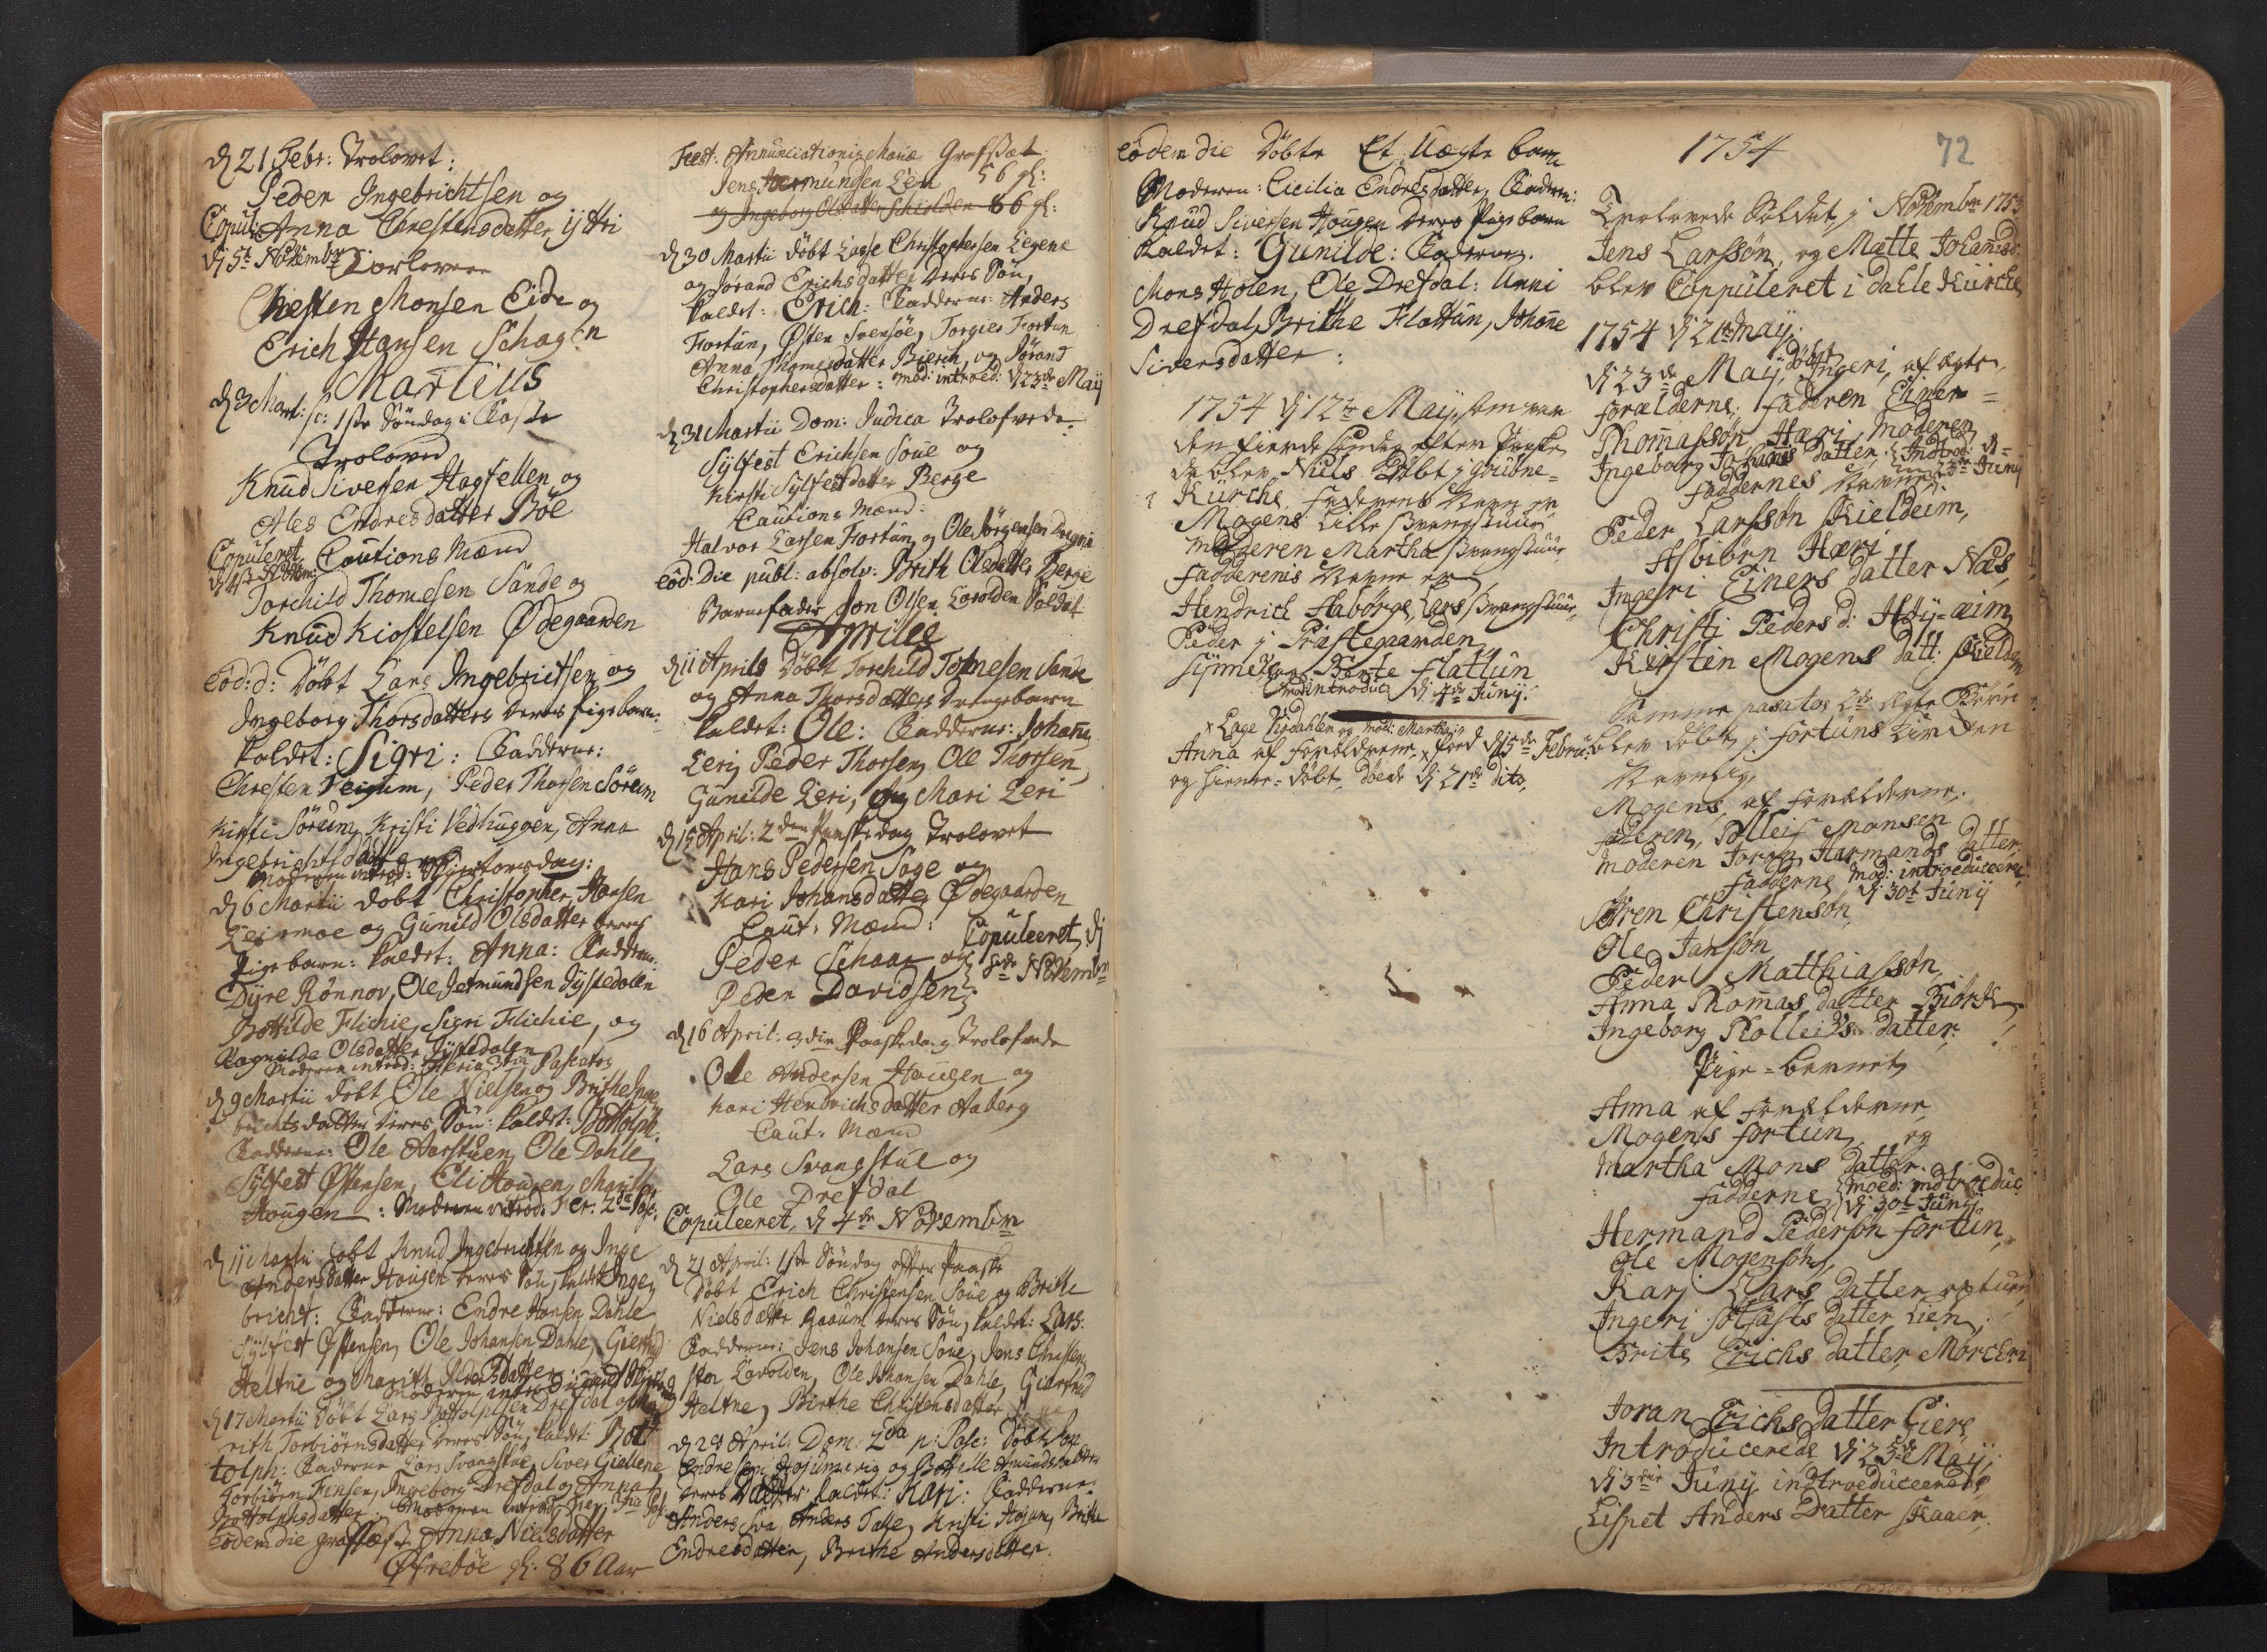 d 21 Febr: Trolovet:
Peder Ingebrichtsen og
Anna Christensdatter ÿttri
Copul:
dj 5te Novembr
Forlovere
Christen Monsen Eide og
Erich Hansen Schagen
Martius
d 3 Mart: sc: 1ste Søndag i Faste
Trolovet
Knud Siversen Hagfellen og
Ales Endresdatter Bøe
Copuleret
Cautions Mænd
Torchild Thomesen Sande og
Knud Kiostelsen Ødegaarden
eod: d: Døbt Lars Ingebrictsen og
Ingeborg Thorsdatters deres pigebarn
kaldet: Sigri: Fadderne:
Chresten Veigum, Peder Thorsen Søreim
Kirsti Søreim, Kristi Vedhuggen, Anna
Ingebrichtsdatter
Moderen introd: Skiertorsdag:
d 6 Martii døbt Christopher Hansen
Leirmoe og Gunild Olsdatter deres
Pigebarn: kaldet: Anna: Fadderne
Dÿre Rønnov, Ole Jetmundsen Jÿstedalen
Bottilde Flichie, Sigri Flichie, og
Ragnilde Olsdatter Jÿstedalen
Moderen introd: Feria 3tia Pascatos
d 9 Martii døbt Ole Nielsen og Brithe Inge
brichtsdatter deres Søn: kaldet: Bottolph:
Fadderne: Ole Aarstuen, Ole Dahle
Sÿlfest Østensen, Eli Hougen, Marita
Hougen: Moderen introd: Fer: 2da Pasc:
d 11 Martii døbt Knud Ingebrichtsen og Inge
Andersdatter Hougen deres Søn, kaldet Inge
bricht: Fadderne: Endre Hansen Dahle
Sÿlfest Østensen, Ole Johansen Dahle, Giertrud
Heltne og Marith Pedersdatter
d 17 Martii døbt Lars Bottolphsen Drefdal og Ma
rith Torbiørnsdatter deres Søn, kaldet: Bot
tolph: Fadderne Lars Svangstue, Siver Giellene
Torbiørn Jensen, Ingeborg Drefdal og Anna
Bottolphsdatter: Moderen introd: Fer: 3tia Pas:
eodem die grafsæst Anna Nielsdatter
Øfrebøe gl: 86 Aar
Fest: Annunciationis Mariæ Grafsæt
Jens Hermundsen Lien 56 gl:
og Ingeborg Olsdatter Schiolden 86 gl:
d 30 Martii døbt Lasse Christophersen Legene
og Jørand Erichsdatter deres Søn,
kaldet: Erich: Fadderne: Anders
Fortun, Østen Svensøe, Torgier Fortun
Anna Thomesdatter Bierch, og Jørand
Christophersdatter: mod: introd: d 23de Maÿ
d 31 Martii Dom: Judica Trolofvede
Sÿlfest Erichsen Soue og
Kirsti Sÿlfestdatter Berge
Cautions Mænd:
Halvor Larsen Fortun, og Ole Jørgensen Dregni
eod: Die publ: absolv: Brith Olsdatter Berge
Barnefader Jon Olsen Lovolden Soldat
Aprilis
d 11 Aprilis døbt Torchild Tomesen Sande
og Anna Thorsdatters Drengebarn
kaldet: Ole: Fadderne: Johan
Leri, Peder Thorsen, Ole Thorsen,
Gunilde Leri, og Mari Leri
d 15 April: 2den Paaskedag Trolovet
Hans Pedersen Soge og
Kari Johansdatter Ødegaarden
Caut: Mænd: Copuleeret dj
Peder Schaar og
Peder Davidsen
d 16 April: 3die Paaskedag Trolofvede
Ole Andersen Hougen og
Kari Hendrichsdatter Aaberg
Caut: Mænd
Lars Svangstue og
Ole Drefdal
Copuleeret, d 4de Novembr
d 21 April: 1ste Søndag efter Paaske
Døbt Erich Christensen Soue og Brithe
Nielsdatter Raaum deres Søn, kaldet: Lars:
Fadderne: Jens Johansen Soue, Jens Christen
sen Lovolden, Ole Johansen Dahle, Giertrud
Heltne, Birthe Christensdatter
d 28 April: Dom: 2da p: Pasc: døbt
Endresen og Bottille Amundsdatter
deres Datter kaldet: Kari: Fadderne:
Anders Sva, Anders Talle, Kristi Hojum, Brithe
Endresdatter, Brithe Andersdatter.
eodem die døbte Et Uægte barn
Moderen: Cicilia Endresdatter, Faderen:
Knud Siversen Hougen deres Pigebarn
kaldet: Gunilde: Fadderne.
Mons Holen, Ole Drefdal: Unni
Drefdal, Brithe Flattun, Johanne
Siversdatter:
1754 dj 12te Maÿ, som var
den fierde Søndag efter Paaske
da blev Niels døbt i
Kürche, faderens Navn er
Mogens Lille Svangstuur
moderen Martha Svangstuur
fadderenis Navne er
Hendrich Habørge, Lars Svangstuur,
Peder i Præstegaarden
Sÿnneve Bente Flattun
mod introduc dj 4de Junij.
x Lage Nÿdahlen og mod: Martha
Anna af forælderne x fød dj 5de Febru:
og hieme-døbt, døede dj 21de dito,
1754
72
Trolovede Soldat, i Novembr 1753
Jens Larssøn, og Mætte Johansd:
blev Coppuleret i dahle Kürche
1754 dj 21te Maÿ.
dj 23de Maÿ, døbt Ingeri, af ægte
forælderne, faderen Einer
Thomassøn Hæri, Moderen
Ingeborg Johans datter: Indtod: d
23de Junÿ
faddernes Navne
Peder Larssøn Kieldeim,
Asbiørn Hæri
Ingeri Einers datter Næs,
Christi Peders d: Høÿ-æim
Kirstin Mogens datt: Kieldem
Samme pasatos 2de ægte Børn
blev døbt i Fortuns Kirchen
Navnlig
Mogens af forælderne,
faderen, Tolleif Monsen
Moderen Joran Harmands datter
Fadderne mod: introeduceere
dj 30t Junÿ
Søren Christensøn
Ole Jansøn
Peder Matthiassøn,
Anna Thomas datter Biørk
Ingeborg Tolleifs datter,
Pige-barnet
Anna af forælderne
Mogens fortun og
Martha Mons datter.
Fadderne moed: indtroeduc
dj 30t Junÿ
Hermand Pedersøn fortun,
Ole Mogensøn,
Kari Lars datter optun,
Ingeri Solfæsts datter Lien,
Brite Erichs datter Mørchri
Joran Erichs datter Eiere
Introducerede dj 23de Maÿ,
dj 3die Junÿ indtroeduceerede
Lispet Anders datter Skaaer.